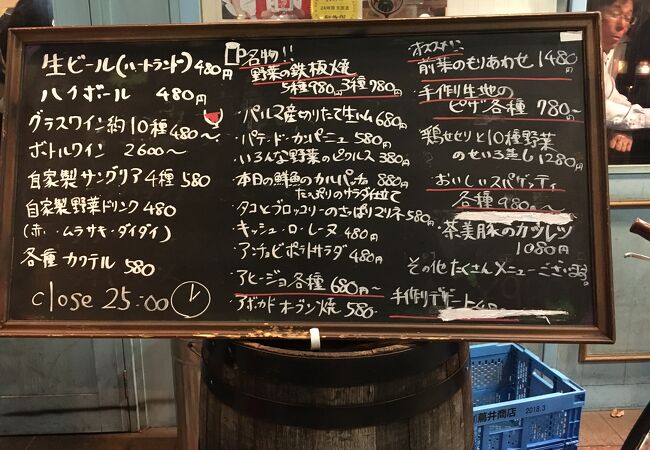 生ビール(ハートランド)480円
ハイボール 480円
グラスワイン約10種480〜
ボトルワイン 2600〜
自家製サングリア4種580
自家製野菜ドリンク480
(赤・ムラサキ・ダイダイ)
各種カクテル 580
close 25:00
名物!!
野菜の鉄板焼
5種980円3種780円
・パルマ産切りたて生ハム680円
・パテ・ド・カンパーニュ580円
・いろんな野菜のピクルス380円
・本日の鮮魚のカルパッチョ880円
たっぷりのサラダ仕立て
・タコとブロッコリーのさっぱりマリネ580円
・キッシュ・ロレーヌ480円
・アンチョビポテトサラダ480円
・アヒージョ各種680円〜
・アボカドオーブン焼580
オススメ!!
前菜のもりあわせ1480円
・手作り生地の
ピザ各種780〜
・鶏せせりと10種野菜
のせいろ蒸し1280円
・おいしいスパゲッティ
各種980円〜
・茶美豚のカツレツ
1080円
その他たくさんメニューございます
手作りデザート
鳥井商店
2018.3